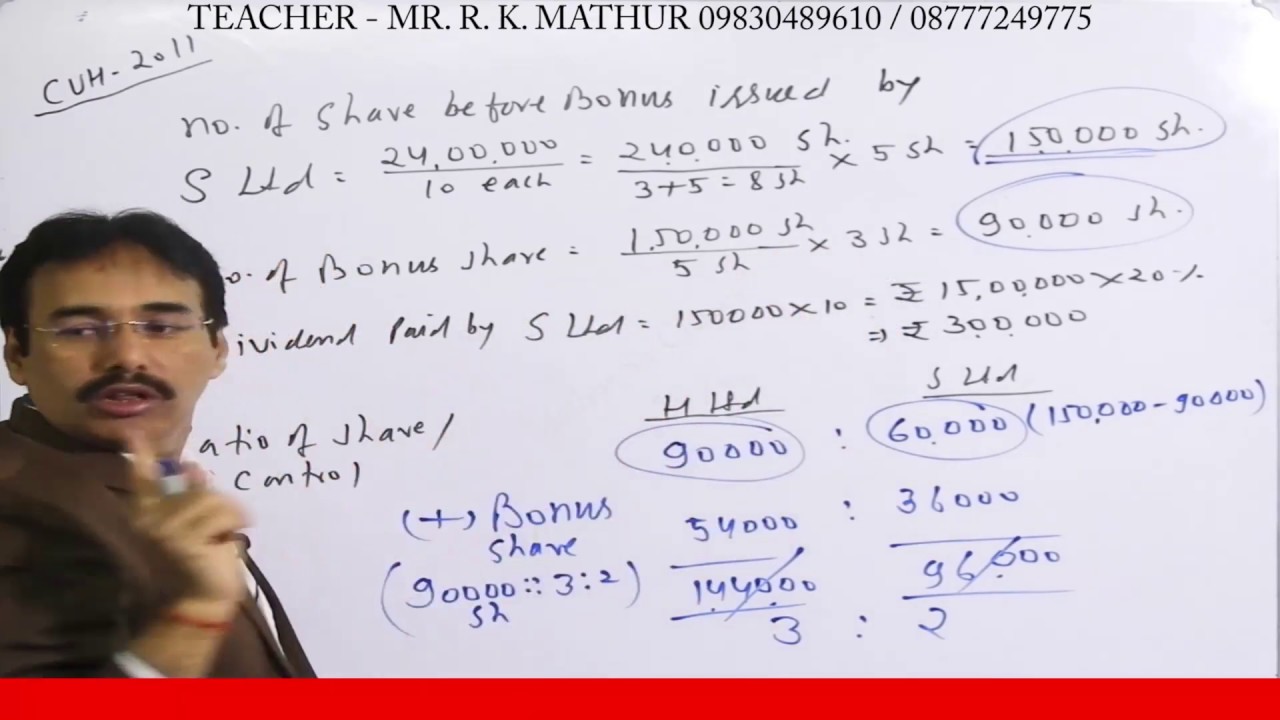 TEACHER - MR. R. K. MATHUR 09830489610 / 08777249775
CUH-2011
no. of share before Bonus issued by
S Ltd = 24,00,000 / 10 each = 240,000 sh. / 3+5=8 sh × 5 sh = 150,000 sh.
o. of Bonus share = 1,50,000 sh / 5 sh × 3 sh = 90,000 sh.
ividend Paid by S Ltd = 150000×10 = ₹ 15,00,000×20%
⇒ ₹ 300,000
H Ltd S Ltd
atio of share/
control 90000 : 60,000 (150,000-90000)
(+) Bonus share 54000 : 36000
(90000 sh :: 3:2) 144000 96000
3 : 2